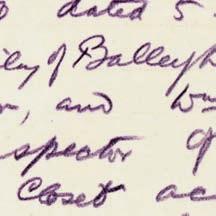 dated 5
of Balley
and
spector of
Closet ac